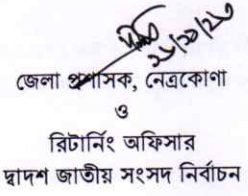 জেলা প্রশাসক, নেত্রকোণা
ও
রিটার্নিং অফিসার
দ্বাদশ জাতীয় সংসদ নির্বাচন